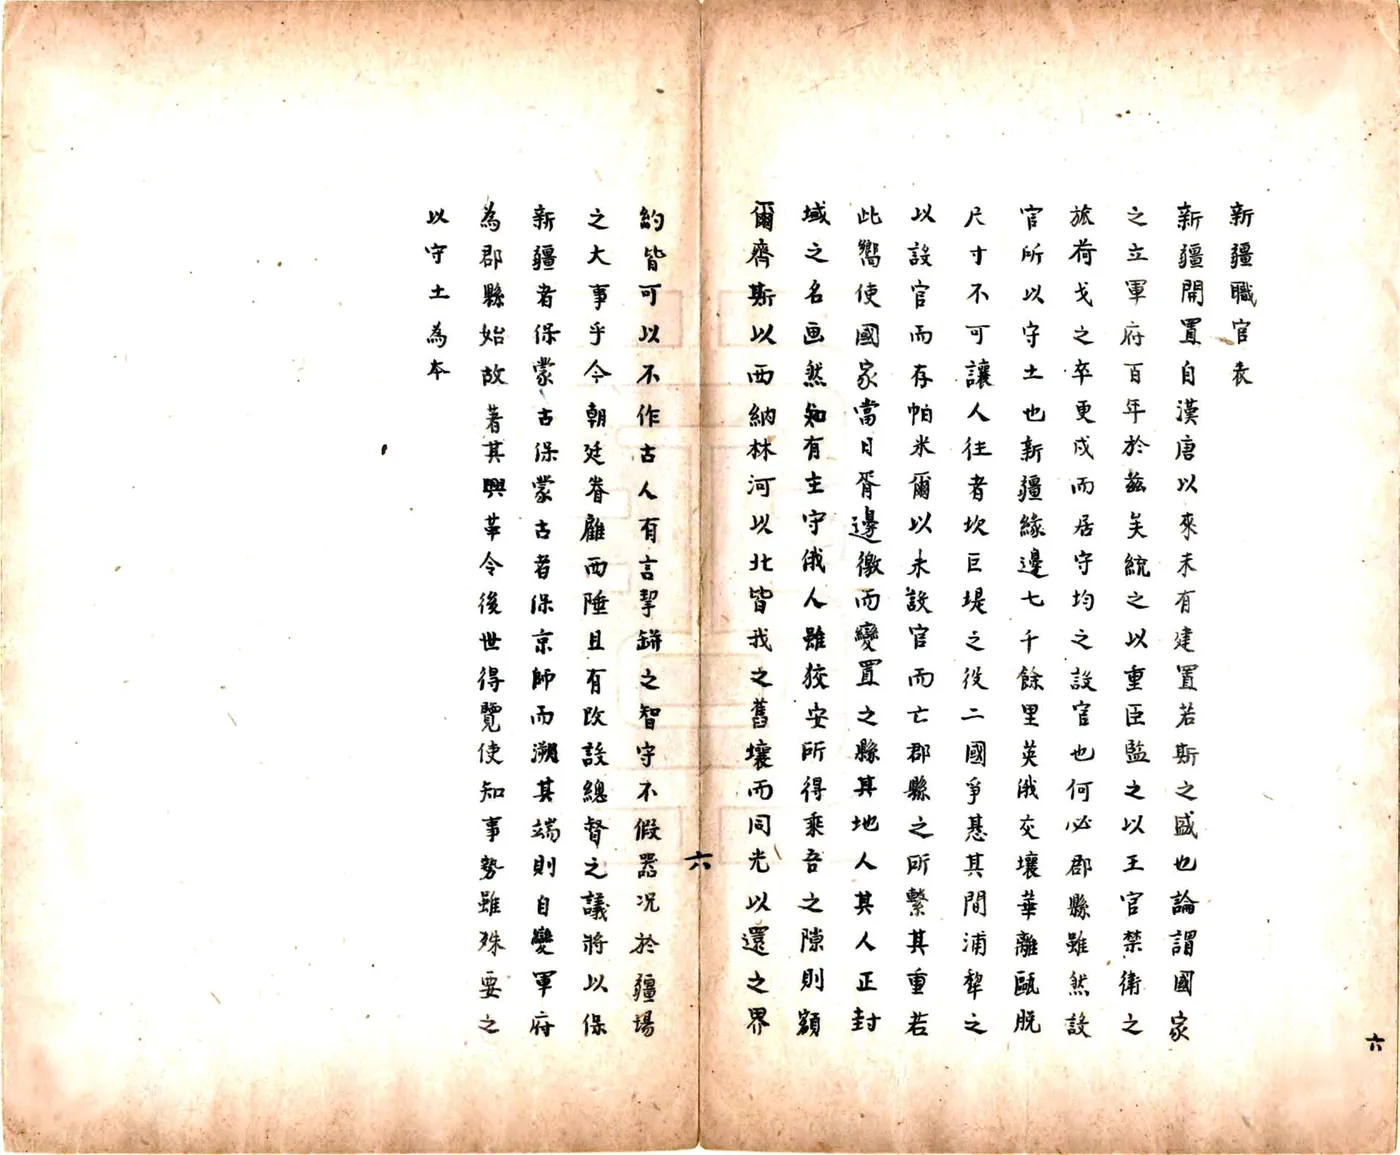 新疆職官表
新疆開置自漢唐以來未有建置若斯之盛也論謂國家
之立軍府百年於茲矣統之以重臣監之以王官禁衛之
旅荷戈之卒更戍而居守均之設官也何必郡縣雖然設
官所以守土也新疆緣邊七千餘里英俄交壤華離甌脫
尺寸不可讓人往者坎巨堤之役二國爭惎其間浦犂之
以設官而存帕米爾以未設官而亡郡縣之所繫其重若
此嚮使國家當日胥邊徼而變置之縣其地人其人正封
域之名画然知有主守俄人雖狡安所得乘吾之隙則額
爾齊斯以西納林河以北皆我之舊壤而同光以還之界
約皆可以不作古人有言挈缾之智守不假器况於疆場
之大事乎今朝廷眷雇西陲且有改設總督之議將以保
新疆者保蒙古保蒙古者保京師而溯其端則自變軍府
為郡縣始故著其興革令後世得覽使知事勢雖殊要之
以守土為本
六
六